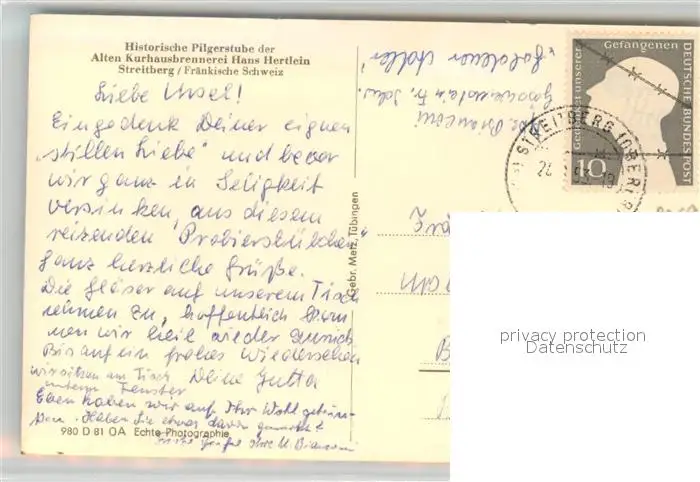 Historische Pilgerstube der
Alten Kurhausbrennerei Hans Hertlein
Streitberg / Fränkische Schweiz
Liebe Ursel!
Eingedenk Deiner eignen
„stillen Liebe" und bevor
wir ganz in Seligkeit
versinken, aus diesem
reizenden Probierstübchen
ganz herzliche Grüße.
Die Gläser auf unserem Tisch
nehmen zu, hoffentlich kom-
men wir heil wieder zurück
Bis auf ein frohes Wiedersehen
wir sitzen am Tisch Deine Jutta
unterm Fenster
Eben haben wir auf Ihr Wohl getrun-
ken. Haben Sie etwas davon gemerkt?
980 D 81 OA Echte Photographie
Gebr. Metz, Tübingen
"Goldener Adler"
Gedenket unserer Gefangenen
DEUTSCHE BUNDESPOST
10
STREITBERG (OBERFR
24
privacy protection
Datenschutz